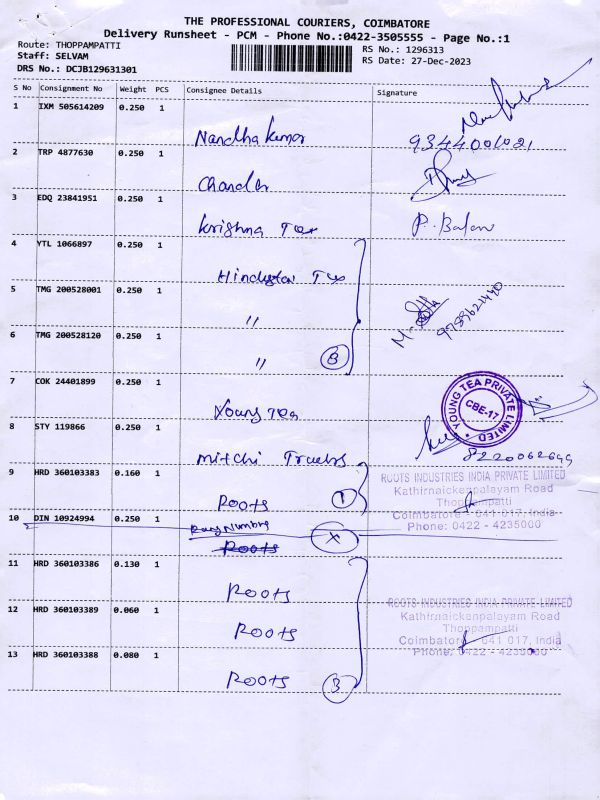 THE PROFESSIONAL COURIERS, COIMBATORE
Delivery Runsheet - PCM - Phone No.:0422-3505555 - Page No.:1
Route: THOPPAMPATTI
Staff: SELVAM
DRS No.: DCJB129631301
RS No.: 1296313
RS Date: 27-Dec-2023
S No Consignment No Weight PCS Consignee Details Signature
1 IXM 505614209 0.250 1
Nandha kumar
9344001021
2 TRP 4877630 0.250 1
Chander
3 EDQ 23841951 0.250 1
Krishna Tex P. Balan
4 YTL 1066897 0.250 1
Hindustan Tex
5 TMG 200528001 0.250 1
"
6 TMG 200528120 0.250 1
" 3
7 COK 24401899 0.250 1
Young Tea
YOUNG TEA PRIVATE LIMITED
CBE-17
8 STY 119866 0.250 1
Mitchi Trucks
9 HRD 360103383 0.160 1
Roots 1
ROOTS INDUSTRIES INDIA PRIVATE LIMITED
Kathirnaickenpalayam Road
Thoppampatti
Coimbatore - 641 017, India
Phone: 0422 - 4235000
10 DIN 10924994 0.250 1
Roots X
11 HRD 360103386 0.130 1
Roots
12 HRD 360103389 0.060 1
Roots
ROOTS INDUSTRIES INDIA PRIVATE LIMITED
Kathirnaickenpalayam Road
Thoppampatti
Coimbatore - 641 017, India
Phone: 0422 - 4235000
13 HRD 360103388 0.080 1
Roots 3